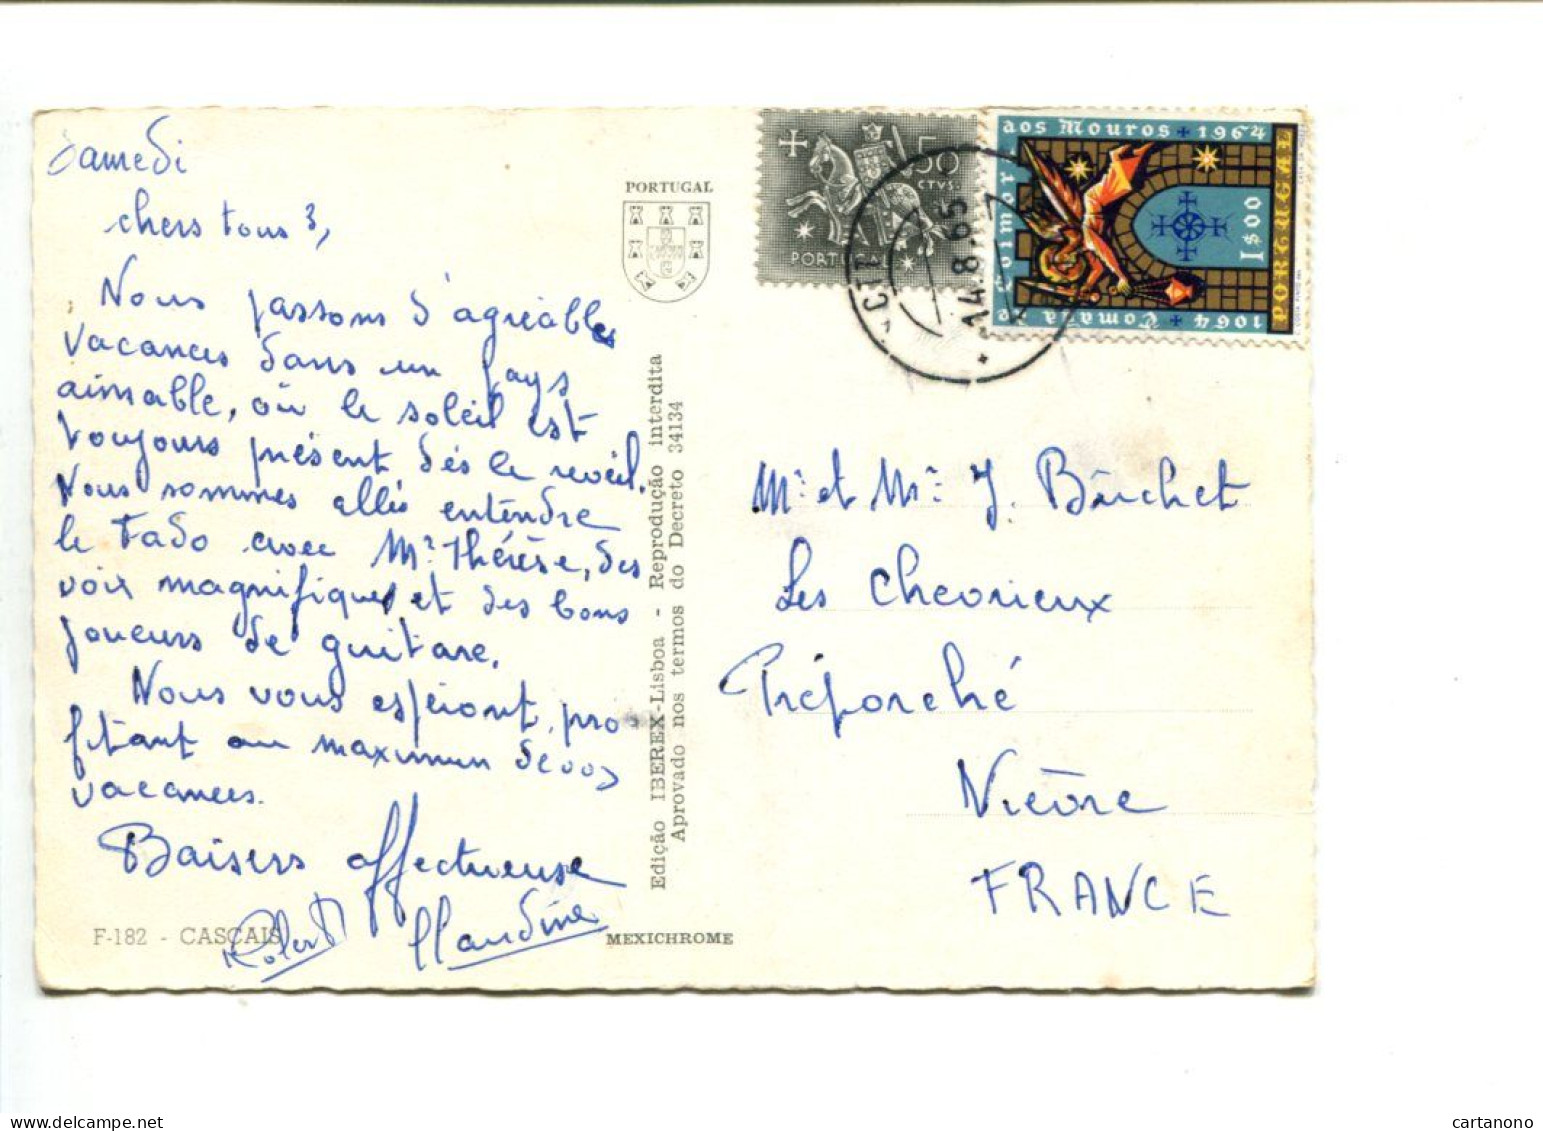 Samedi
chers tous 3,
Nous passons d'agréables
vacances dans un pays
aimable, où le soleil est
toujours présent dès le reveil.
Nous sommes allés entendre
le Fado avec Mr Thérèse, des
voix magnifiques et des bons
joueurs de guitare.
Nous vous espérons, pro
fitant au maximum de vos
vacances.
Baisers affectueuse
Robert Claudine
F-182 - CASCAIS
MEXICHROME
PORTUGAL
Edição IBEREX-Lisboa - Reprodução interdita
Aprovado nos termos do Decreto 34134
50
CTVS.
PORTUGAL
1064 + Tomada de Coimbra aos Mouros + 1964
1$00
PORTUGAL
CTT
14.8.65
Mr et Mr J. Bûichet
Les Chevrieux
Préporché
Nièvre
FRANCE
cartanono